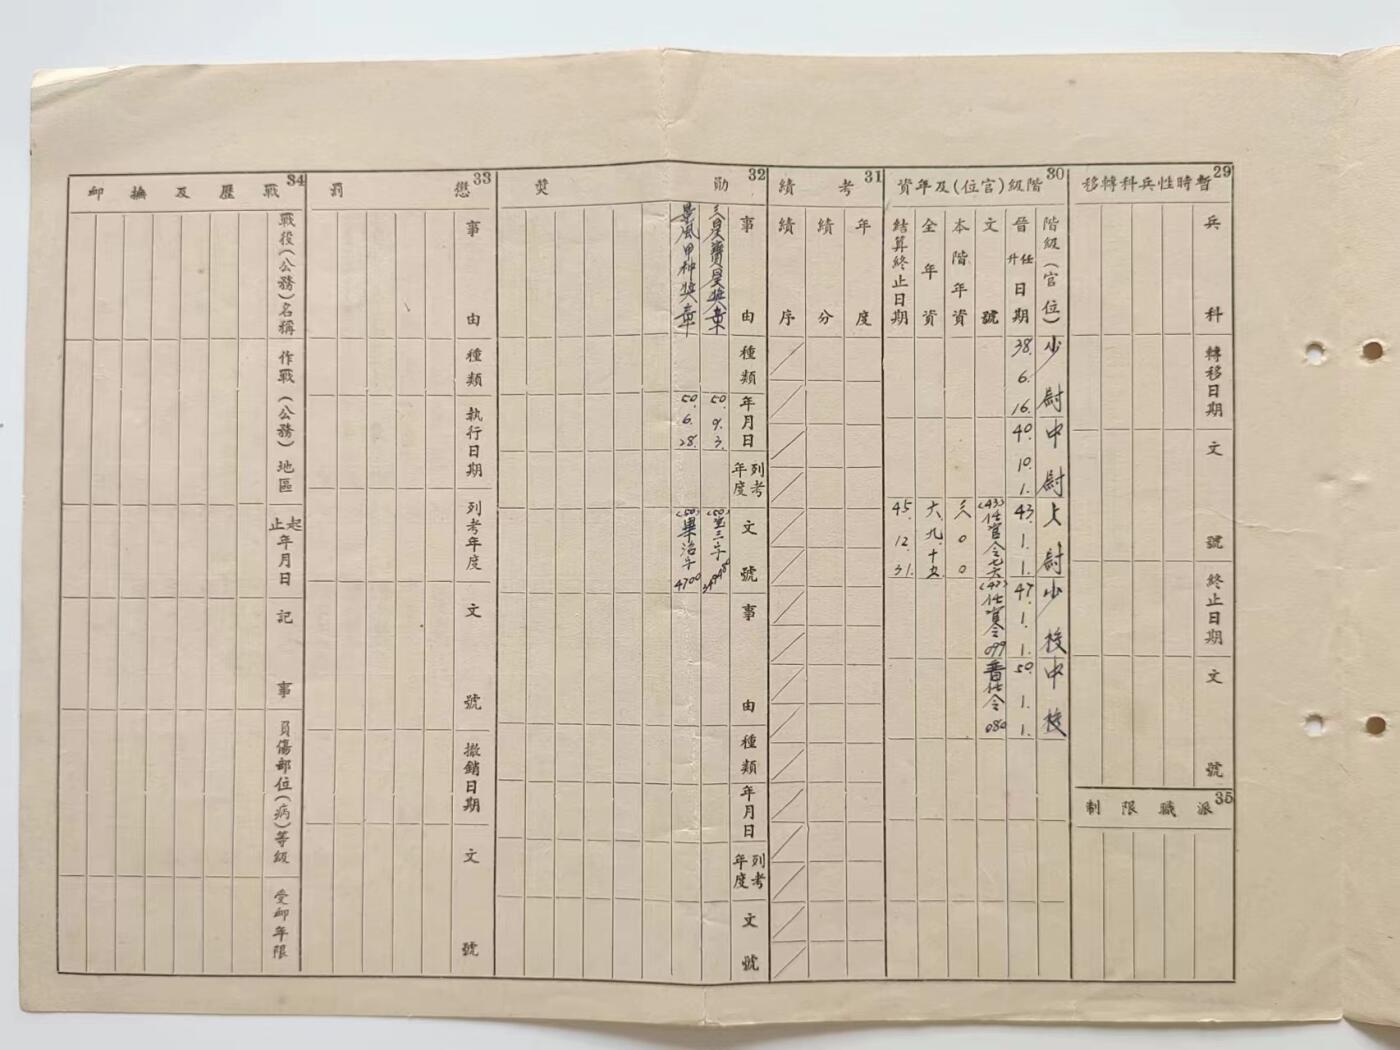 29
暫時性兵科轉移
兵科
轉移日期
文號
終止日期
文號
35
派職限制
30
階級(官位)及年資
階級(官位)
晉升任日期
文號
本階年資
全年資
結算終止日期
少尉
38. 6. 16.
中尉
40. 10. 1.
上尉
43. 1. 1.
45. 12. 31.
少校
47. 1. 1.
(47)任官令099
中校
50. 1. 1.
晋任令080
31
考績
年度
績分
績序
32
勛獎
事由
種類
年月日
列考年度
文號
事由
種類
年月日
列考年度
文號
50. 9. 3.
景風甲种獎章
50. 6. 28.
4700
33
懲罰
事由
種類
執行日期
列考年度
文號
撤銷日期
文號
34
戰歷及撫卹
戰役(公務)名稱
作戰(公務)地區
起止年月日
記事
負傷部位(病)等級
受卹年限